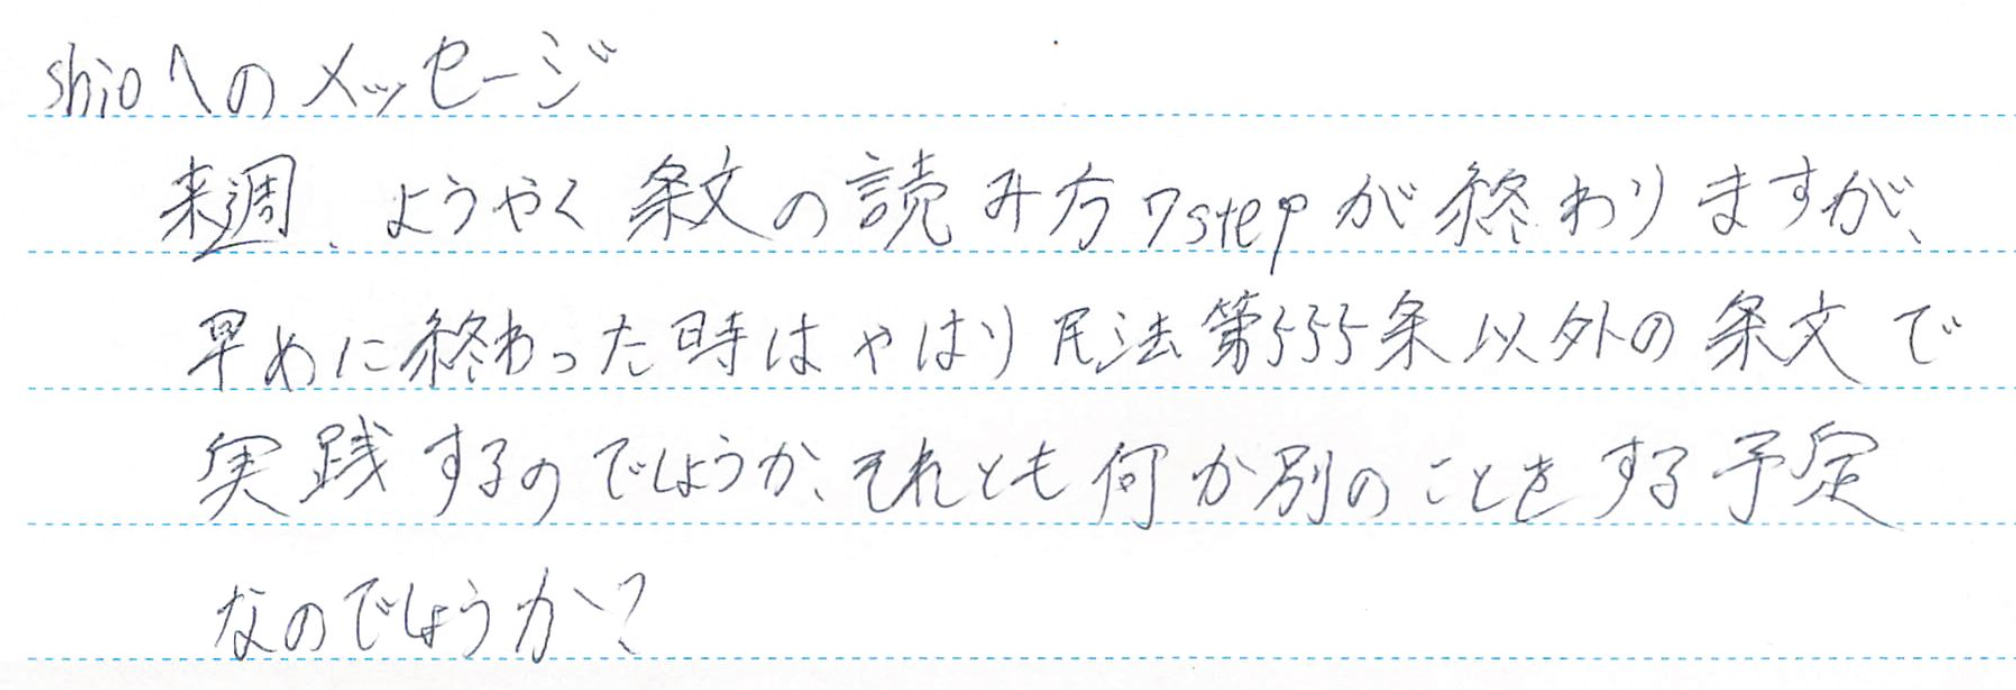 shioへのメッセージ
来週、ようやく条文の読み方7stepが終わりますが、
早めに終わった時はやはり民法第555条以外の条文で
実践するのでしょうか、それとも何か別のことをする予定
なのでしょうか?